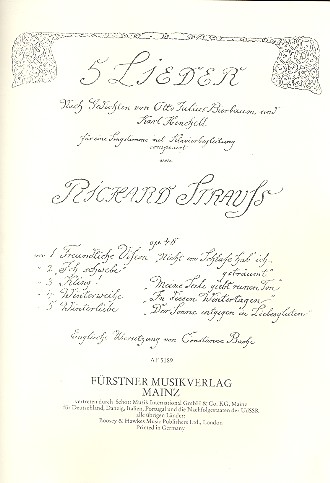 5 LIEDER
Nach Gedichten von Otto Julius Bierbaum und
Karl Henckell
für eine Singstimme mit Klavierbegleitung
componiert
von
RICHARD STRAUSS
op. 48
No 1 Freundliche Vision "Nicht im Schlafe hab ich
geträumt"
" 2 "Ich schwebe"
" 3 Kling! "Meine Seele giebt reinen Ton"
" 4 Winterweihe "In diesen Wintertagen"
" 5 Winterliebe "Der Sonne entgegen in Liebesgluten"
Englische Übersetzung von Constance Bache
A F 5159
FÜRSTNER MUSIKVERLAG
MAINZ
vertreten durch: Schott Musik International GmbH & Co. KG, Mainz
für Deutschland, Danzig, Italien, Portugal und die Nachfolgestaaten der UdSSR
alle übrigen Länder:
Boosey & Hawkes Music Publishers Ltd., London
Printed in Germany